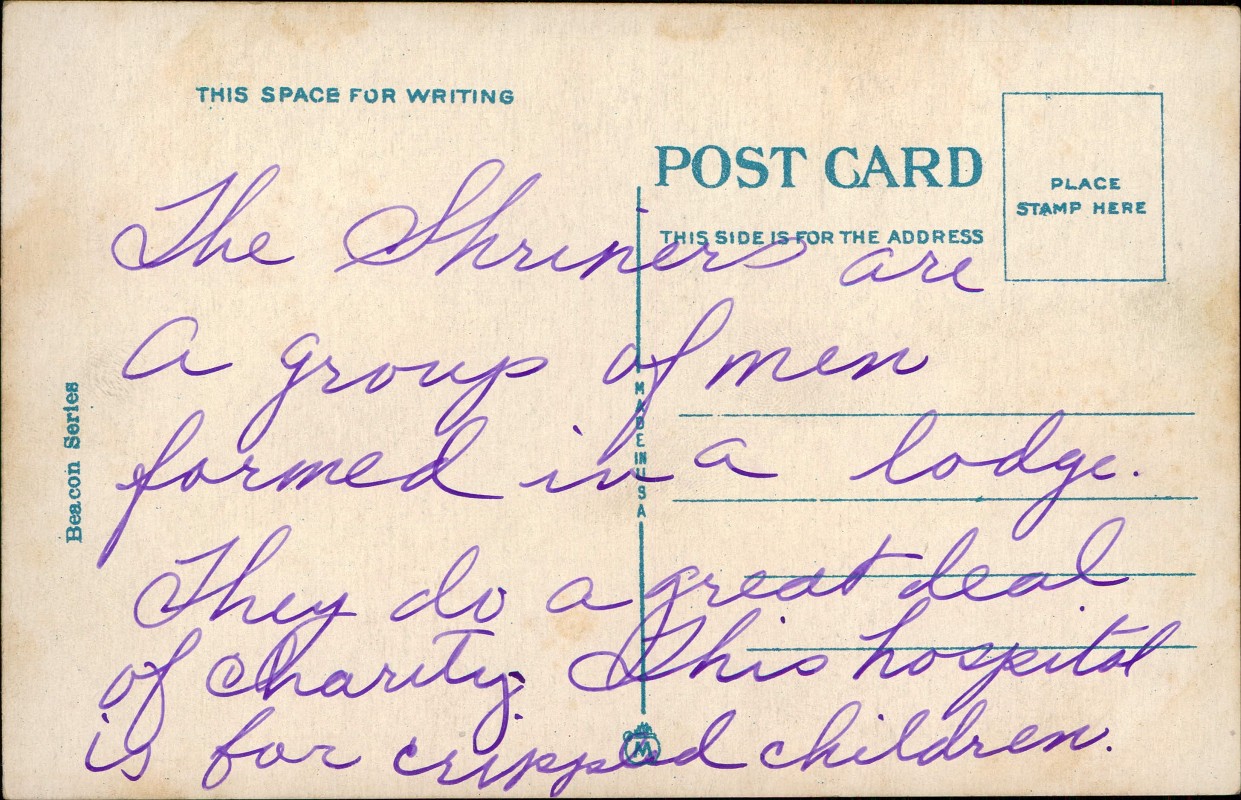 THIS SPACE FOR WRITING
POST CARD
THIS SIDE IS FOR THE ADDRESS
PLACE
STAMP HERE
The Shriners are
a group of men
formed in a lodge.
They do a great deal
of charity. This hospital
is for crippled children.
Beacon Series
MADE IN USA
M